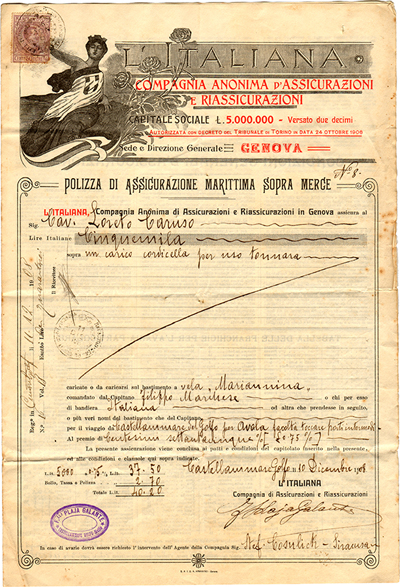 L'ITALIANA
COMPAGNIA ANONIMA D'ASSICURAZIONI
E RIASSICURAZIONI
CAPITALE SOCIALE L. 5.000.000 - Versato due decimi
AUTORIZZATA CON DECRETO DEL TRIBUNALE DI TORINO IN DATA 24 OTTOBRE 1906
Sede e Direzione Generale GENOVA
No 8.
POLIZZA DI ASSICURAZIONE MARITTIMA SOPRA MERCE
L'ITALIANA, Compagnia Anonima di Assicurazioni e Riassicurazioni in Genova assicura al
Sig. Cav. Loreto Caruso
Lire Italiane Cinquemila
sopra un carico corticella per uso tonnara
caricate o da caricarsi sul bastimento a vela Mariannina
comandato dal Capitano Filippo Marchese o chi per esso
di bandiera Italiana od altra che prendesse in seguito,
o più veri nomi del bastimento che del Capitano
per il viaggio da Castellammare del Golfo per Avola facoltà toccare porti intermedi
Al premio di Centesimi settantacinque % [0.75%]
La presente assicurazione viene conchiusa ai patti e condizioni del capitolato inserito nella presente,
ed alle condizioni e clausole qui sopra indicate.
L.it. 5000 a 0.75 L.it. 37.50
Bollo, Tassa e Polizza 2.70
Totale L.it. 40.20
Castellammare Golfo 10 Dicembre 1908
L'ITALIANA
Compagnia di Assicurazioni e Riassicurazioni
PLAJA GALANTE
CASTELLAMMARE GOLFO
In caso di avarie dovrà essere richiesto l'intervento dell'Agente della Compagnia Sig. Ned. Cosulich - Siracusa